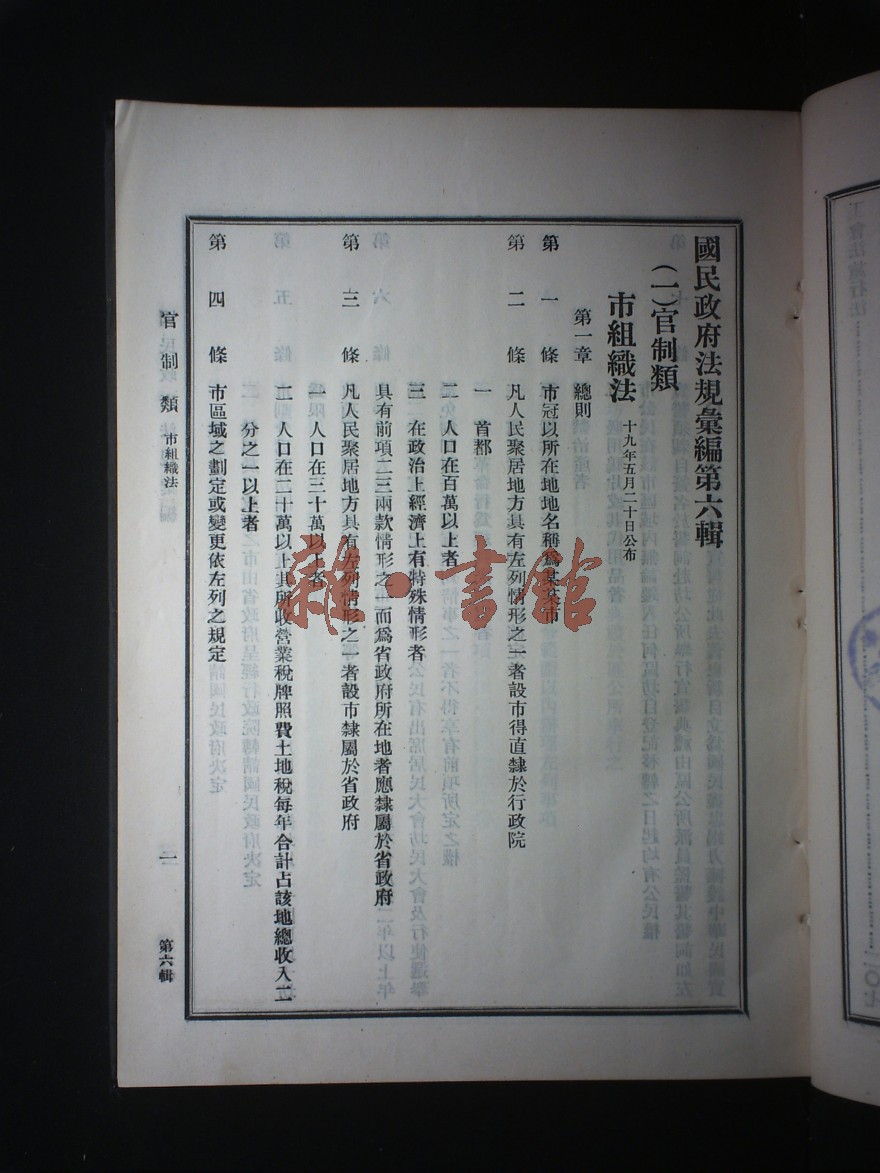 國民政府法規彙編第六輯
（一）官制類
市組織法 十九年五月二十日公布
第一章 總則
第一條 市冠以所在地地名稱爲某某市
第二條 凡人民聚居地方具有左列情形之一者設市得直隸於行政院
一 首都
二 人口在百萬以上者
三 在政治上經濟上有特殊情形者
具有前項二三兩款情形之一而爲省政府所在地者應隸屬於省政府
第三條 凡人民聚居地方具有左列情形之一者設市隸屬於省政府
一 人口在三十萬以上者
二 人口在二十萬以上其所收營業稅牌照費土地稅每年合計占該地總收入二
分之一以上者
第四條 市區域之劃定或變更依左列之規定
官制類 市組織法 一 第六輯
雜·書館
工會法施行法
一〇七